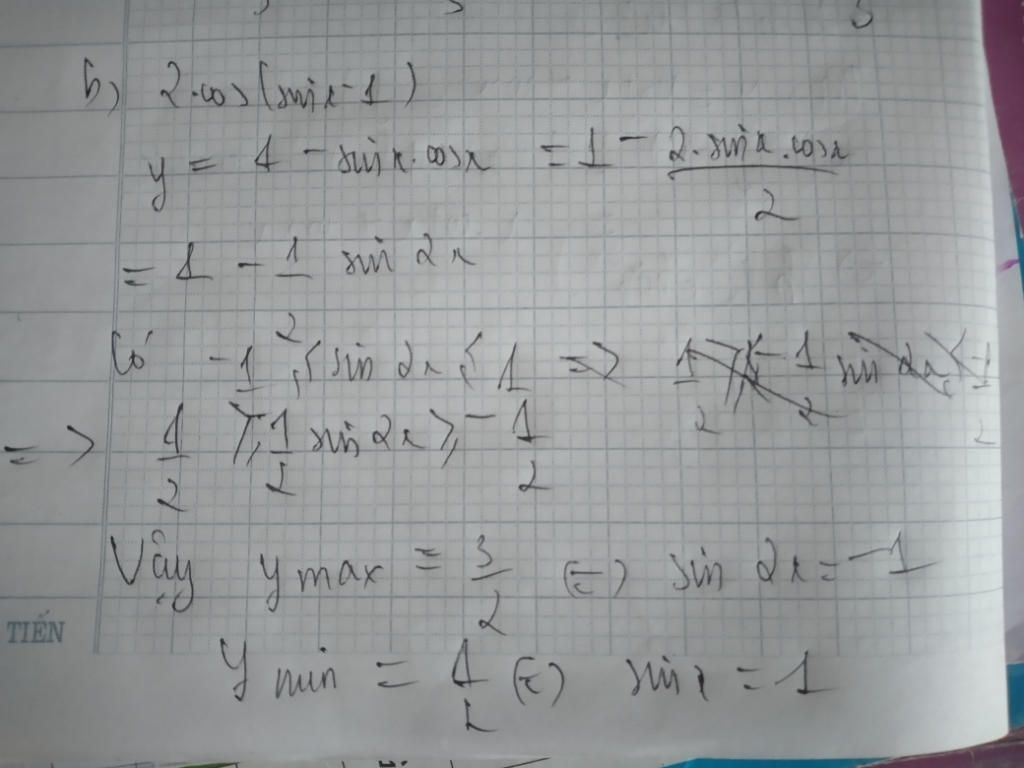 b) 2.cos(sinx-1)
y = 1 - sinx.cosx = 1 - \frac{2.sinx.cosx}{2}
= 1 - \frac{1}{2} sin 2x
Có -1 ≤ sin 2x ≤ 1 =>
=> \frac{1}{2} ≥ \frac{1}{2} sin 2x ≥ -\frac{1}{2}
Vậy y max = \frac{3}{2} (=) sin 2x = -1
TIẾN
y min = \frac{1}{2} (=) sin x = 1